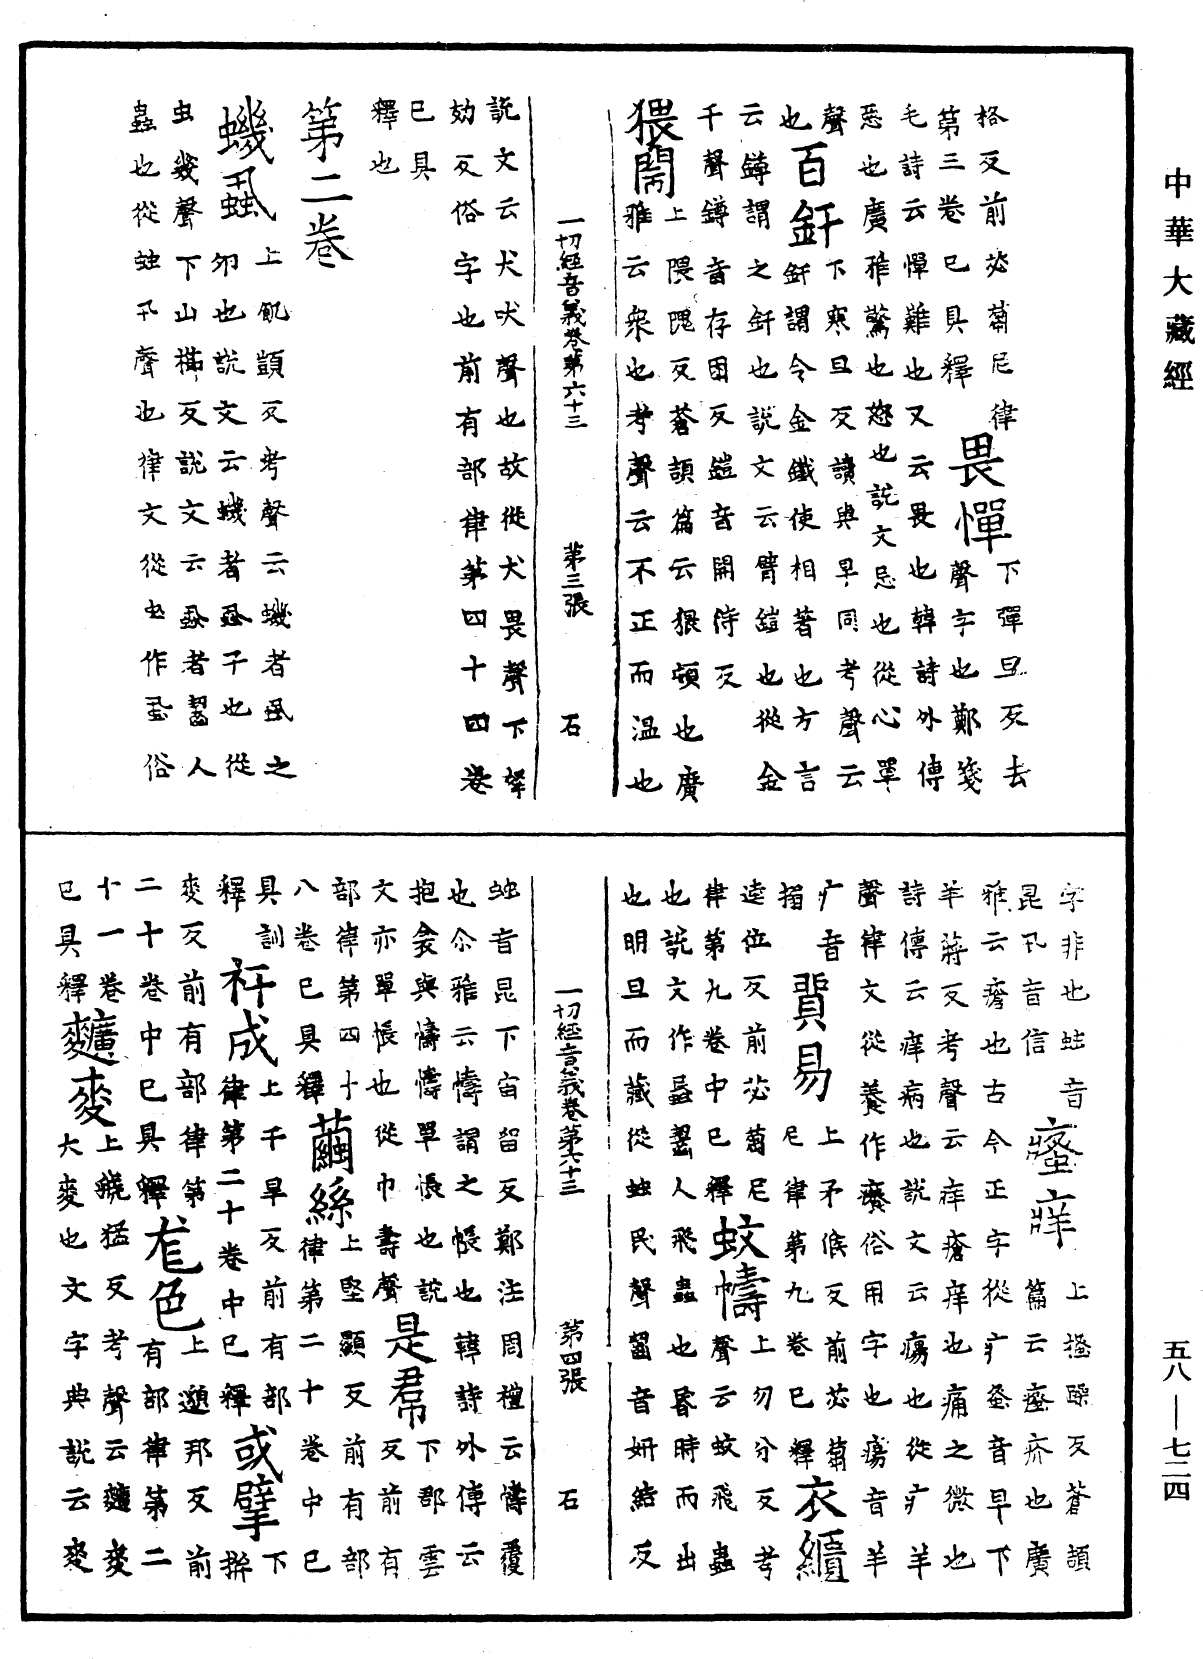 中華大藏經
格反前苾蒭尼律
第三卷已具釋
畏憚
下彈旦反去
聲字也鄭箋
毛詩云憚難也又云畏也韓詩外傳
惡也廣雅驚也怒也說文忌也從心單
聲
百釬
下寒旦反讀與旱同考聲云
也釬謂令金鐵使相著也方言
云鐏謂之釬也說文云臂鎧也從金
干聲鐏音存困反鎧音開待反
猥鬧
上隈隗反蒼頡篇云猥頓也廣
雅云衆也考聲云不正而温也
一切經音義卷第六十三 第三張 石
說文云犬吠聲也故從犬畏聲下拏
効反俗字也前有部律第四十四卷
已具
釋也
第二卷
蟣蝨
上飢顗反考聲云蟣者虱之
卵也說文云蟣者蝨子也從
虫幾聲下山櫛反說文云蝨者齧人
蟲也從䖵卂聲也律文從虫作虱俗
字非也䖵音
昆卂音信
瘙痒
上搔躁反蒼頡
篇云瘙疥也廣
雅云瘡也古今正字從疒蚤音早下
羊蔣反考聲云痒瘡痒也痛之微也
詩傳云痒病也說文云瘍也從疒羊
聲律文從養作癢俗用字也瘍音羊
疒音
搦
貿易
上矛候反前苾蒭
尼律第九卷已釋
衣櫃
逵位反前苾蒭尼
律第九卷中已釋
蚊幬
上勿分反考
聲云蚊飛蟲
也說文作蟁齧人飛蟲也昏時而出
也明旦而藏從䖵民聲齧音妍結反
一切經音義卷第六十三 第四張 石
䖵音昆下宙留反鄭注周禮云幬覆
也尒雅云幬謂之帳也韓詩外傳云
抱衾與幬幬單帳也說
文亦單帳也從巾壽聲
是帬
下郡雲
反前有
部律第四十
八卷已具釋
繭絲
上堅顯反前有部
律第二十卷中已
具訓
釋
衦成
上干旱反前有部
律第二十卷中已釋
或擘
下
擗
麥反前有部律第
二十卷中已具釋
尨色
上邈邦反前
有部律第二
十一卷
已具釋
䵃麥
上虢猛反考聲云䵃麥
大麥也文字典說云麥
五八—七二四